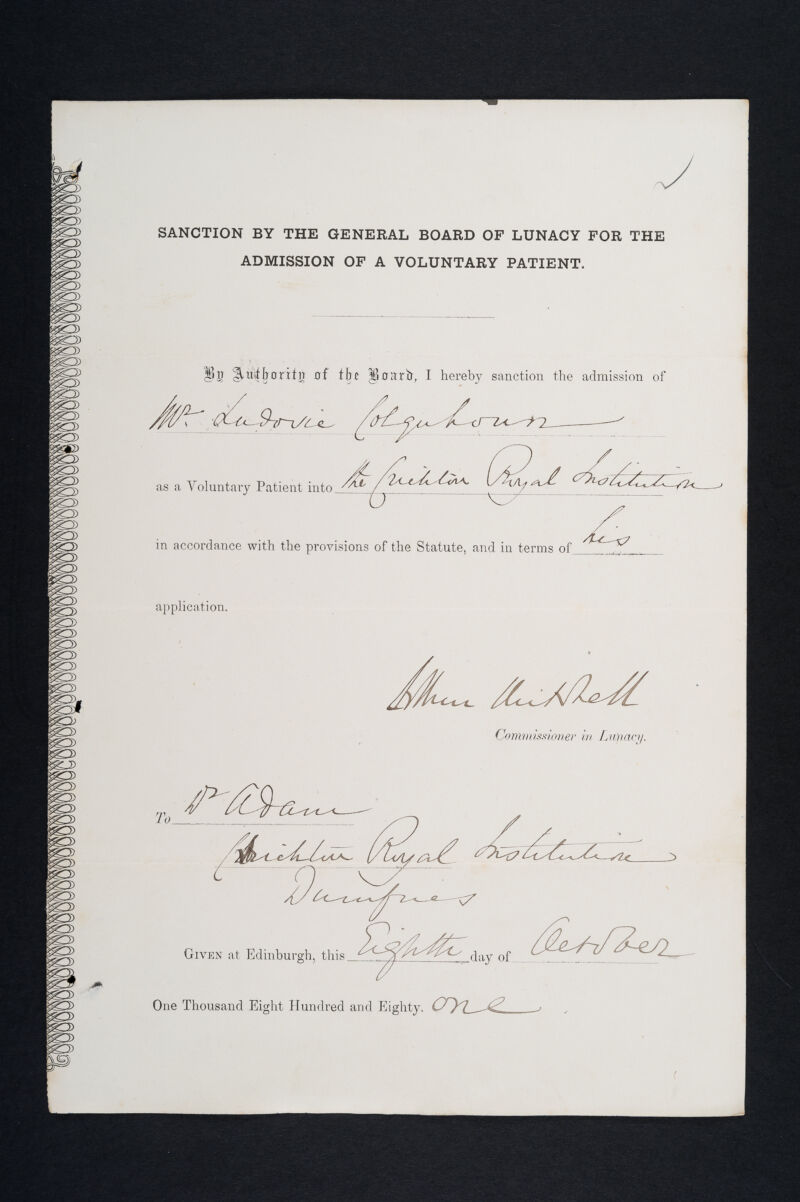 SANCTION BY THE GENERAL BOARD OF LUNACY FOR THE
ADMISSION OF A VOLUNTARY PATIENT.
By Authority of the Board, I hereby sanction the admission of
Mr. Ludovic Colquhoun
as a Voluntary Patient into the Crichton Royal Institution
in accordance with the provisions of the Statute, and in terms of his
application.
Arthur Mitchell
Commissioner in Lunacy.
To Dr Adam
Crichton Royal Institution
Dumfries
GIVEN at Edinburgh, this Eighth day of October
One Thousand Eight Hundred and Eighty. one